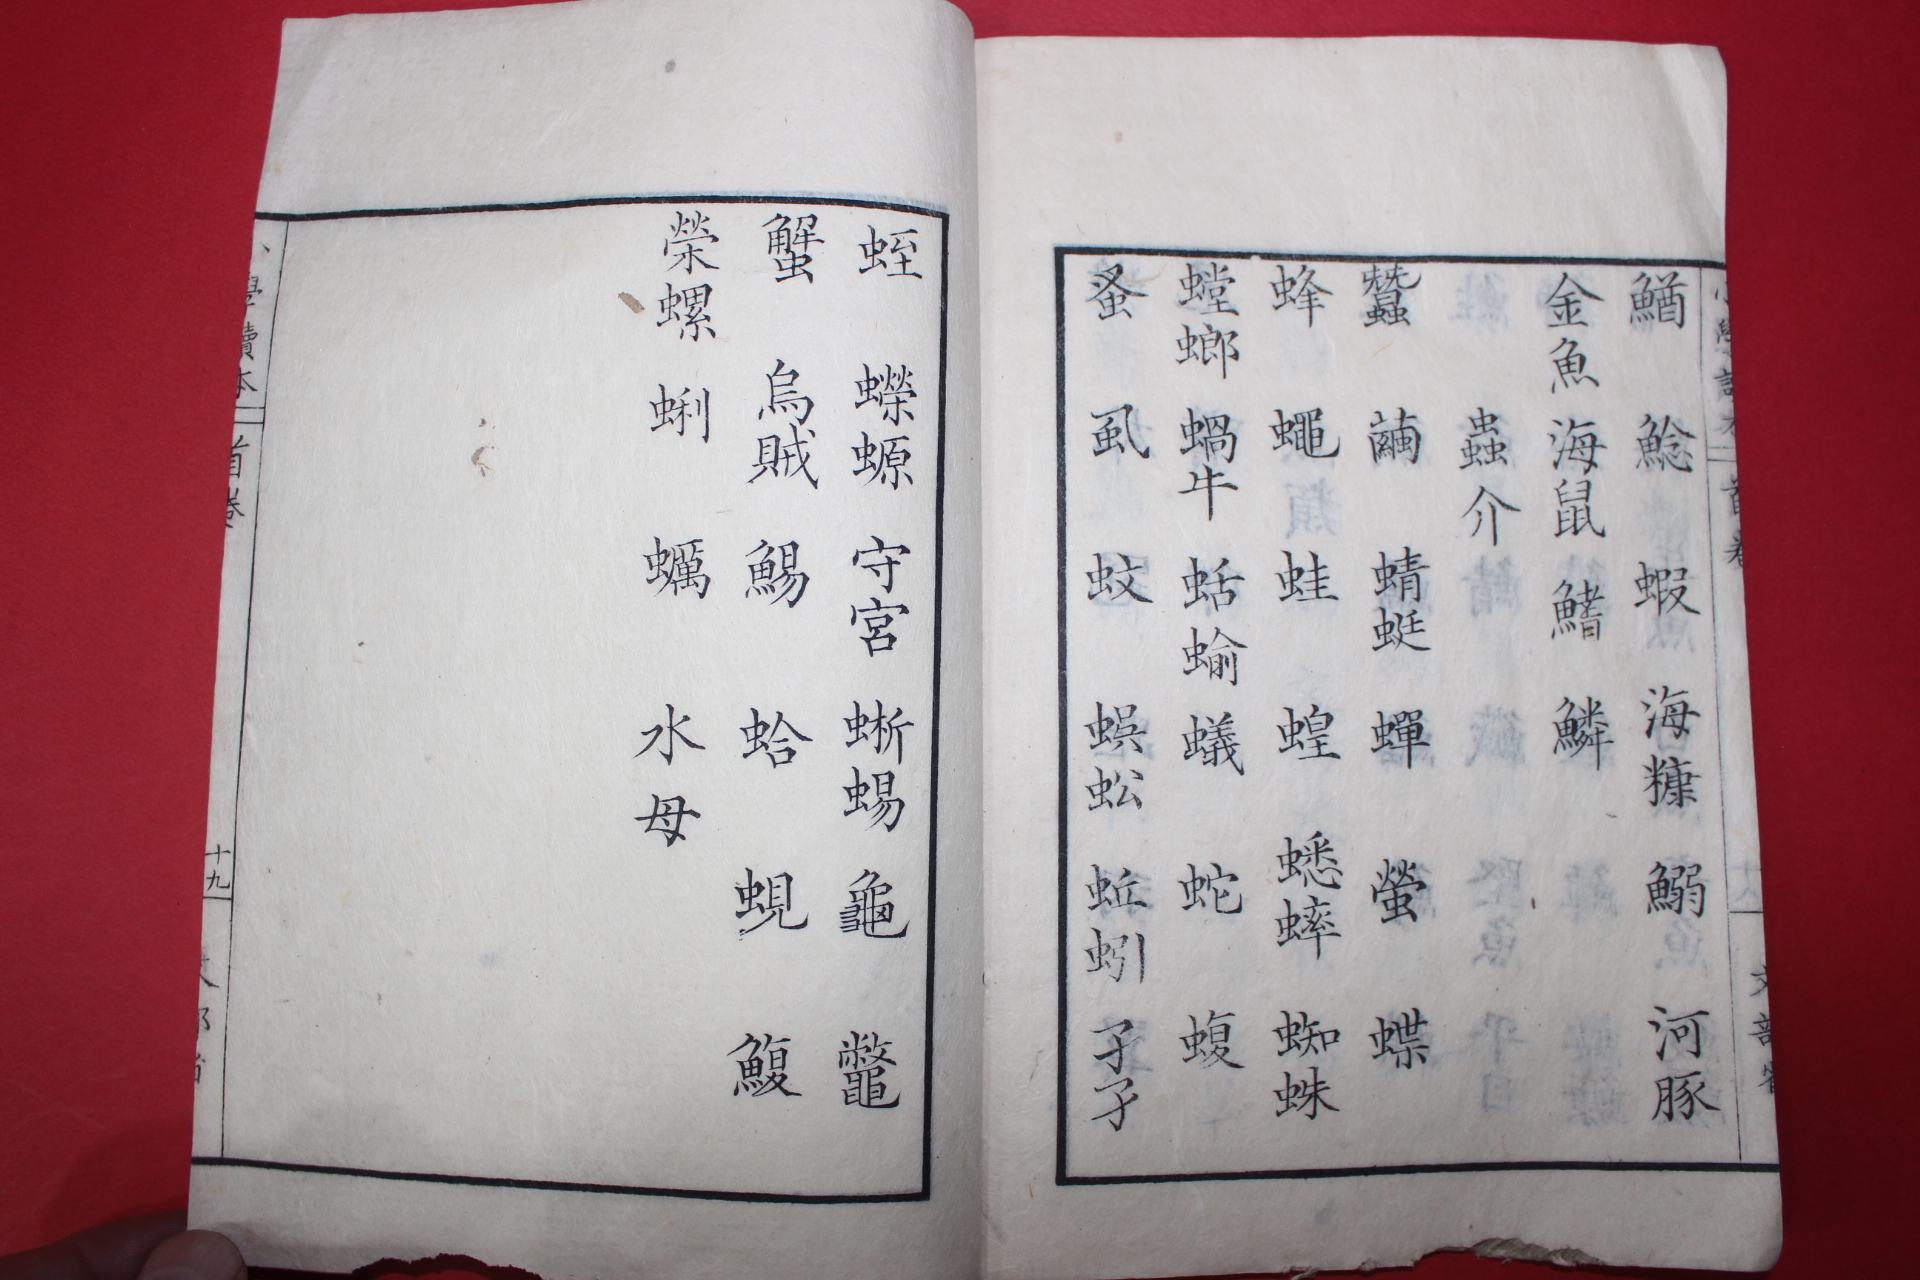 鰌 鯰 蝦 海糠 鰯 河豚
金魚 海鼠 鰭 鱗
蟲介
蠶 繭 蜻蜓 蟬 螢 蝶
蜂 蠅 蛙 蝗 蟋蟀 蜘蛛
螳螂 蝸牛 蛞蝓 蟻 蛇 蝮
蚤 虱 蚊 蜈蚣 蚯蚓 孑孑
蛭 蠑螈 守宮 蜥蜴 龜 鼈
蟹 烏賊 鯣 蛤 蜆 鰒
榮螺 蜊 蠣 水母
小學讀本 首卷 十九 文部省
首卷
文部省